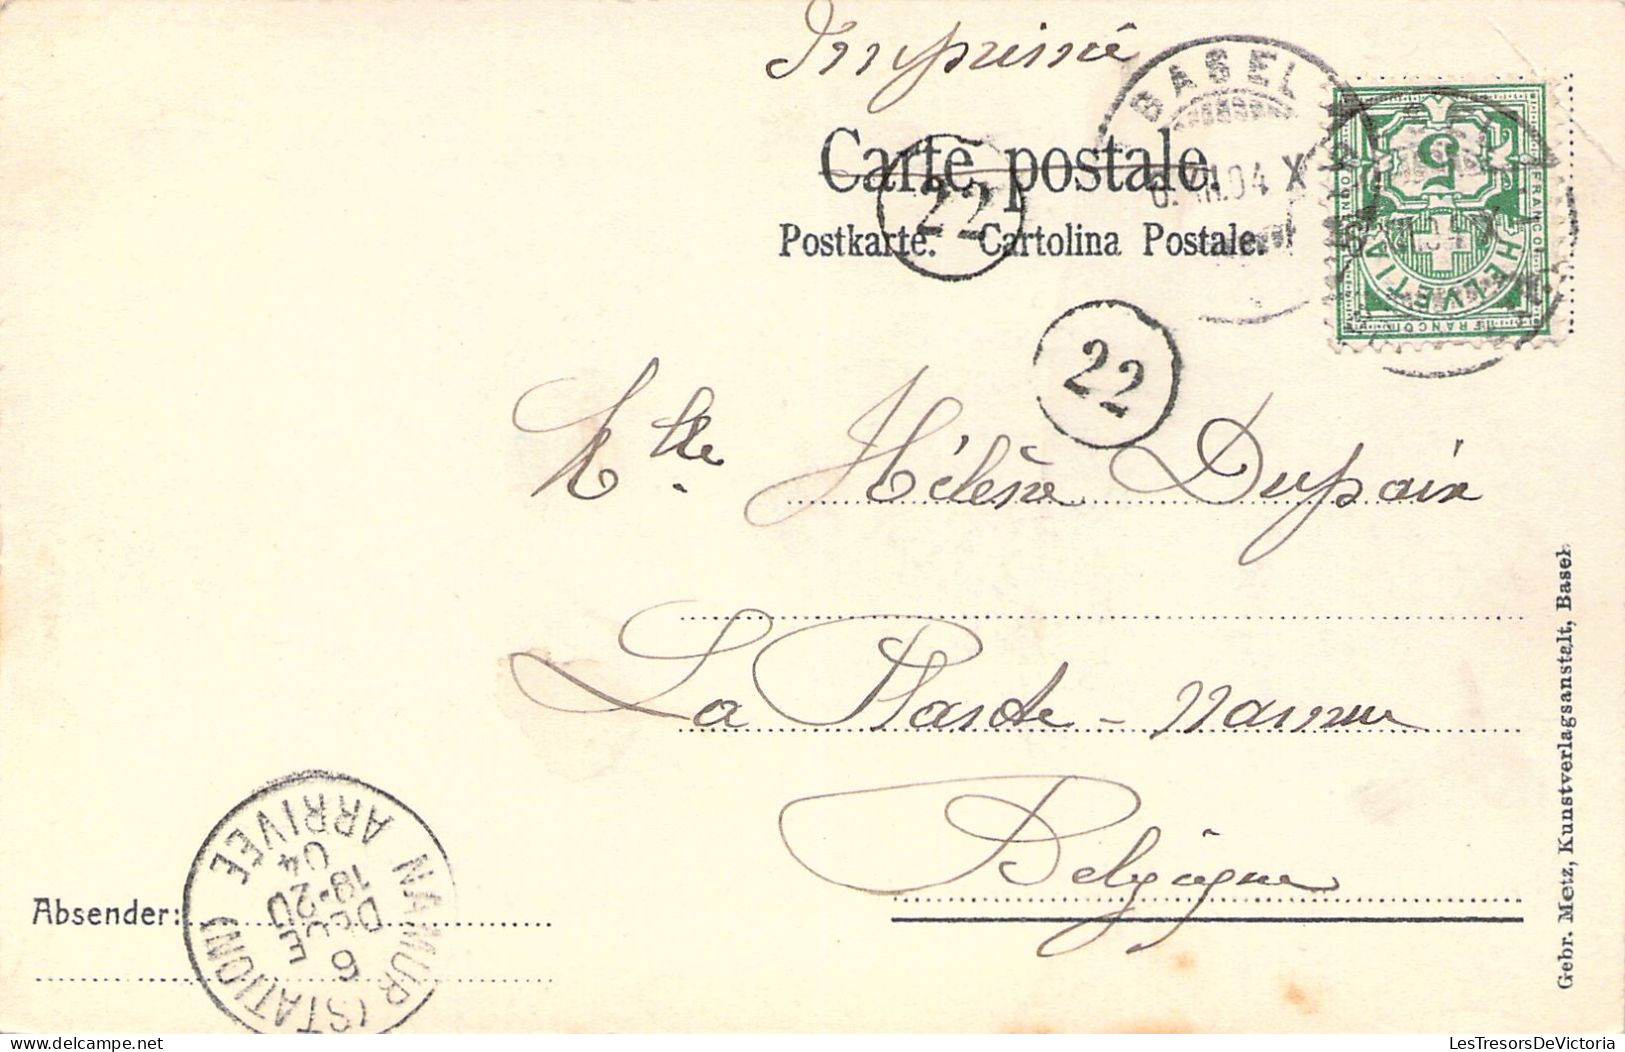 Imprimé
Carte postale.
Postkarte. Cartolina Postale.
BASEL
X
22
22
5
HELVETIA
FRANCO
FRANCO
Mlle Hélène Dupaix
La Plante - Namur
Belgique
Absender:
NAMUR (STATION)
ARRIVÉE
6
DEC
19-20
04
Gebr. Metz, Kunstverlagsanstalt, Basel
delcampe.net
LesTresorsDeVictoria